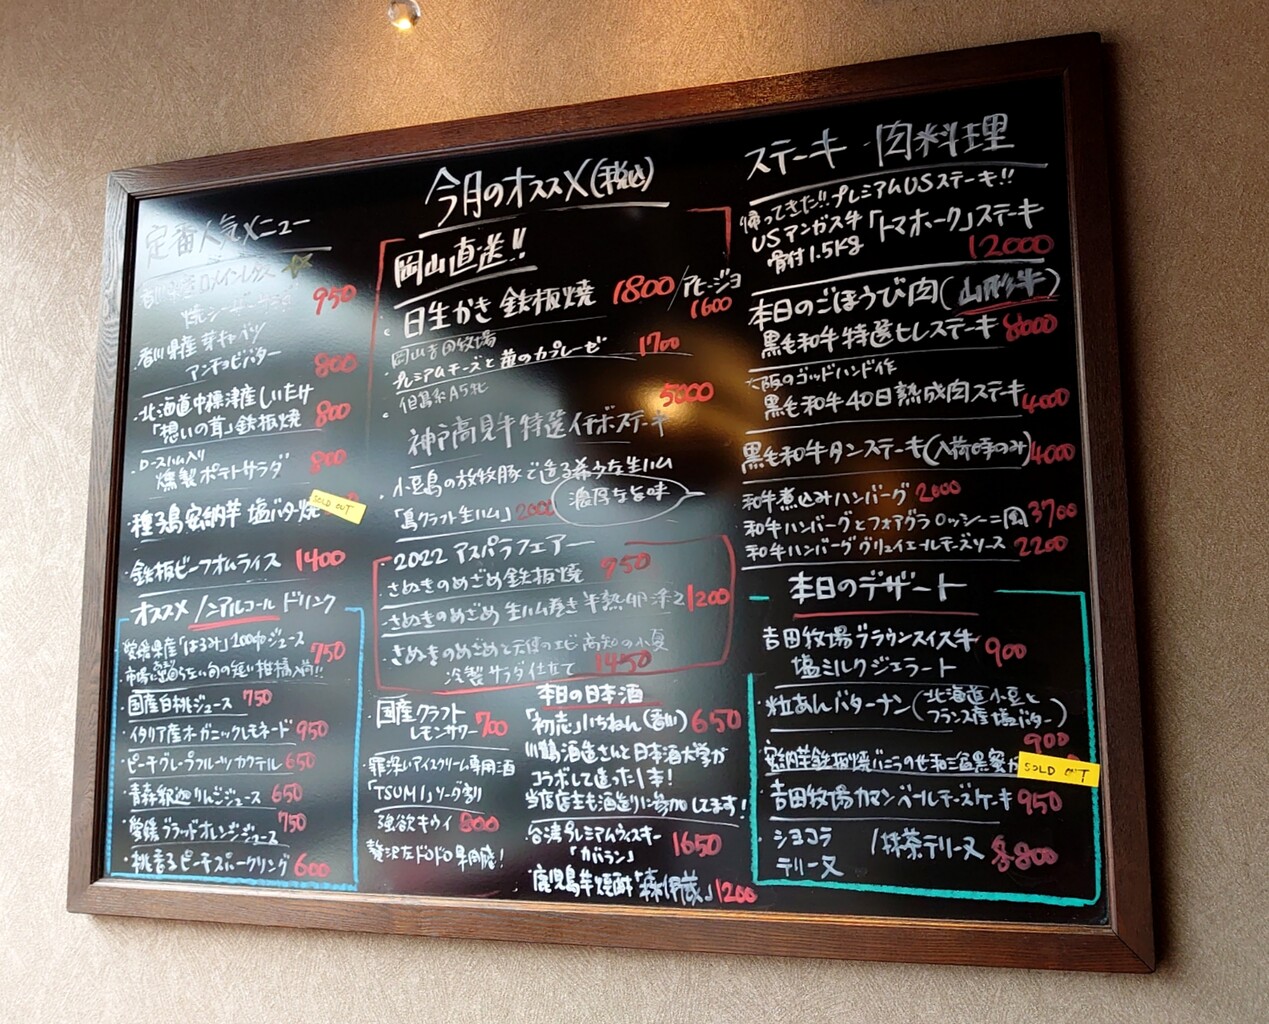 定番人気メニュー
950
香川県産芽キャベツ
アンチョビバター 800
・北海道中標津産しいたけ
「想いの茸」鉄板焼 800
・ロースハム入り
燻製ポテトサラダ 800
・種子島安納芋 塩バター焼
SOLD OUT
・鉄板ビーフオムライス 1400
オススメ ノンアルコール ドリンク
愛媛県産「はるみ」100%ジュース 750
・国産白桃ジュース 750
・イタリア産オーガニックレモネード 950
・ピーチグレープフルーツカクテル 650
・青森釈迦りんごジュース 650
・愛媛ブラッドオレンジジュース 750
・桃香るピーチスパークリング 600
今月のオススメ(税込)
岡山直送!!
・日生かき 鉄板焼 1800/アヒージョ 1600
岡山吉田牧場
・プレミアムチーズと苺のカプレーゼ 1700
・但馬系A5北 5000
神戸高見牛特選イチボステーキ
・小豆島の放牧豚で造る希少な生ハム
「島クラフト生ハム」2000
濃厚な旨味
・2022 アスパラフェアー
・さぬきのめざめ 鉄板焼 950
・さぬきのめざめ 生ハム巻き 半熟卵添え 1200
・さぬきのめざめと天使のエビ 高知の小夏
冷製サラダ仕立て 1450
・国産クラフト
レモンサワー 700
・罪深いアイスクリーム専用酒
「TSUMI」ソーダ割り
強欲キウイ 800
贅沢なドロドロ果肉感!
本日の日本酒
「初志」 650
川鶴酒造さんと日本酒大学が
コラボして造った1本!
当店店主も酒造りに参加してます!
・台湾プレミアムウィスキー
「カバラン」 1650
・鹿児島芋焼酎「森伊蔵」1200
ステーキ 肉料理
帰ってきた!!プレミアムUSステーキ!!
USアンガス牛「トマホーク」ステーキ
骨付1.5Kg 12000
本日のごほうび肉(山形牛)
黒毛和牛特選ヒレステーキ 8000
大阪のゴッドハンド作
黒毛和牛40日熟成肉ステーキ 4000
黒毛和牛タンステーキ(入荷時のみ)4000
和牛煮込みハンバーグ 2000
和牛ハンバーグとフォアグラ ロッシーニ風 3700
和牛ハンバーグ グリュイエールチーズソース 2200
本日のデザート
・吉田牧場ブラウンスイス牛
塩ミルクジェラート 900
・粒あんバターナン(北海道小豆と
フランス産塩バター) 900
・安納芋鉄板焼バニラのせ和三盆黒蜜が
SOLD OUT
・吉田牧場カマンベールチーズケーキ 950
・ショコラ
テリーヌ /抹茶テリーヌ 各800